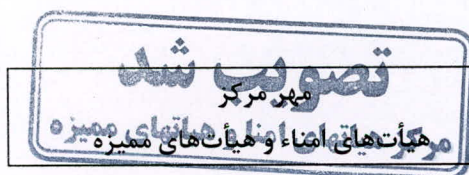 تصویب شد
مهر مرکز
هیأت‌های امناء و هیأت‌های ممیزه
مرکز هیاتهای امنا و هیاتهای ممیزه